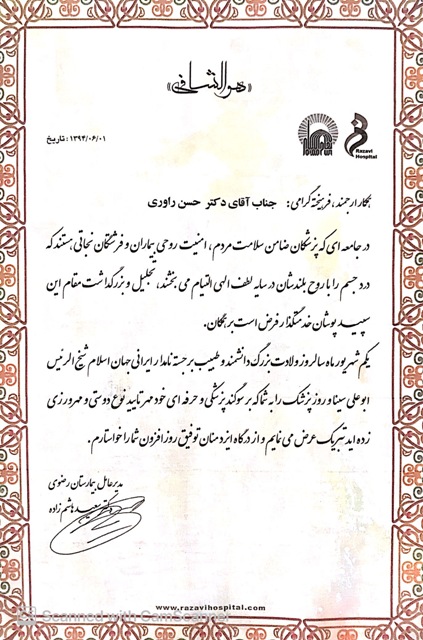 «هوالشافی»
Razavi
Hospital
تاریخ: ۱۳۹۴/۰۶/۰۱
همکار ارجمند، فرهیخته گرامی: جناب آقای دکتر حسن راوری
در جامعه ای که پزشکان ضامن سلامت مردم، امنیت روحی بیماران و فرشتگان نجاتی هستند که
درد جسم را با روح بلندشان در سایه لطف الهی التیام می بخشند، تجلیل و بزرگداشت مقام این
سپید پوشان خدمتگذار فرض است بر همگان.
یکم شهریور ماه سالروز ولادت بزرگ دانشمند و طبیب برجسته نامدار ایرانی جهان اسلام شیخ الرئیس
ابوعلی سینا و روز پزشک را به شما که بر سوگند پزشکی و حرفه ای خود مهر تایید نوع دوستی و مهرورزی
زده اید تبریک عرض می نمایم و از درگاه ایزد منان توفیق روز افزون شما را خواستارم.
مدیرعامل بیمارستان رضوی
دکتر سعید هاشم زاده
www.razavihospital.com
Scanned with CamScanner